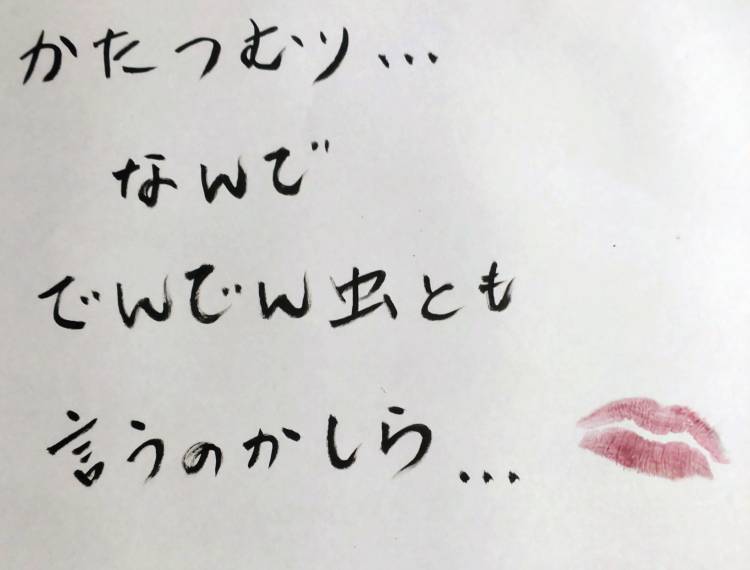 かたつむり...
なんで
でんでん虫とも
言うのかしら...